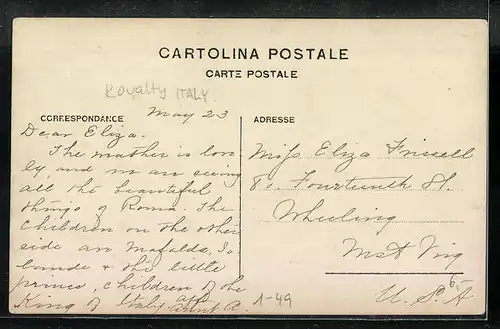 CARTOLINA POSTALE
CARTE POSTALE
Royalty ITALY
May 23
CORRESPONDANCE
Dear Eliza-
The weather is love
ly, and we are seeing
all the beautiful
things of Roma. The
Children on the other
side are Mafalda, Jo
landa & the little
prince, children of the
King of Italy
A.
1-49
ADRESSE
Miss Eliza Frissell
80 Fourteenth St.
Wheeling
West Virg
U. S. A